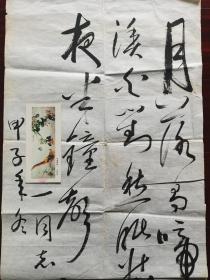 月落烏啼
漁火對愁眠姑
夜半鐘聲
同志
甲子年冬